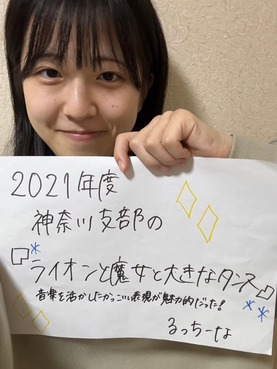 2021年度
神奈川支部の
ライオンと魔女と大きなタンス
音楽を活かしたかっこいい表現が魅力的だった!
るっちーな